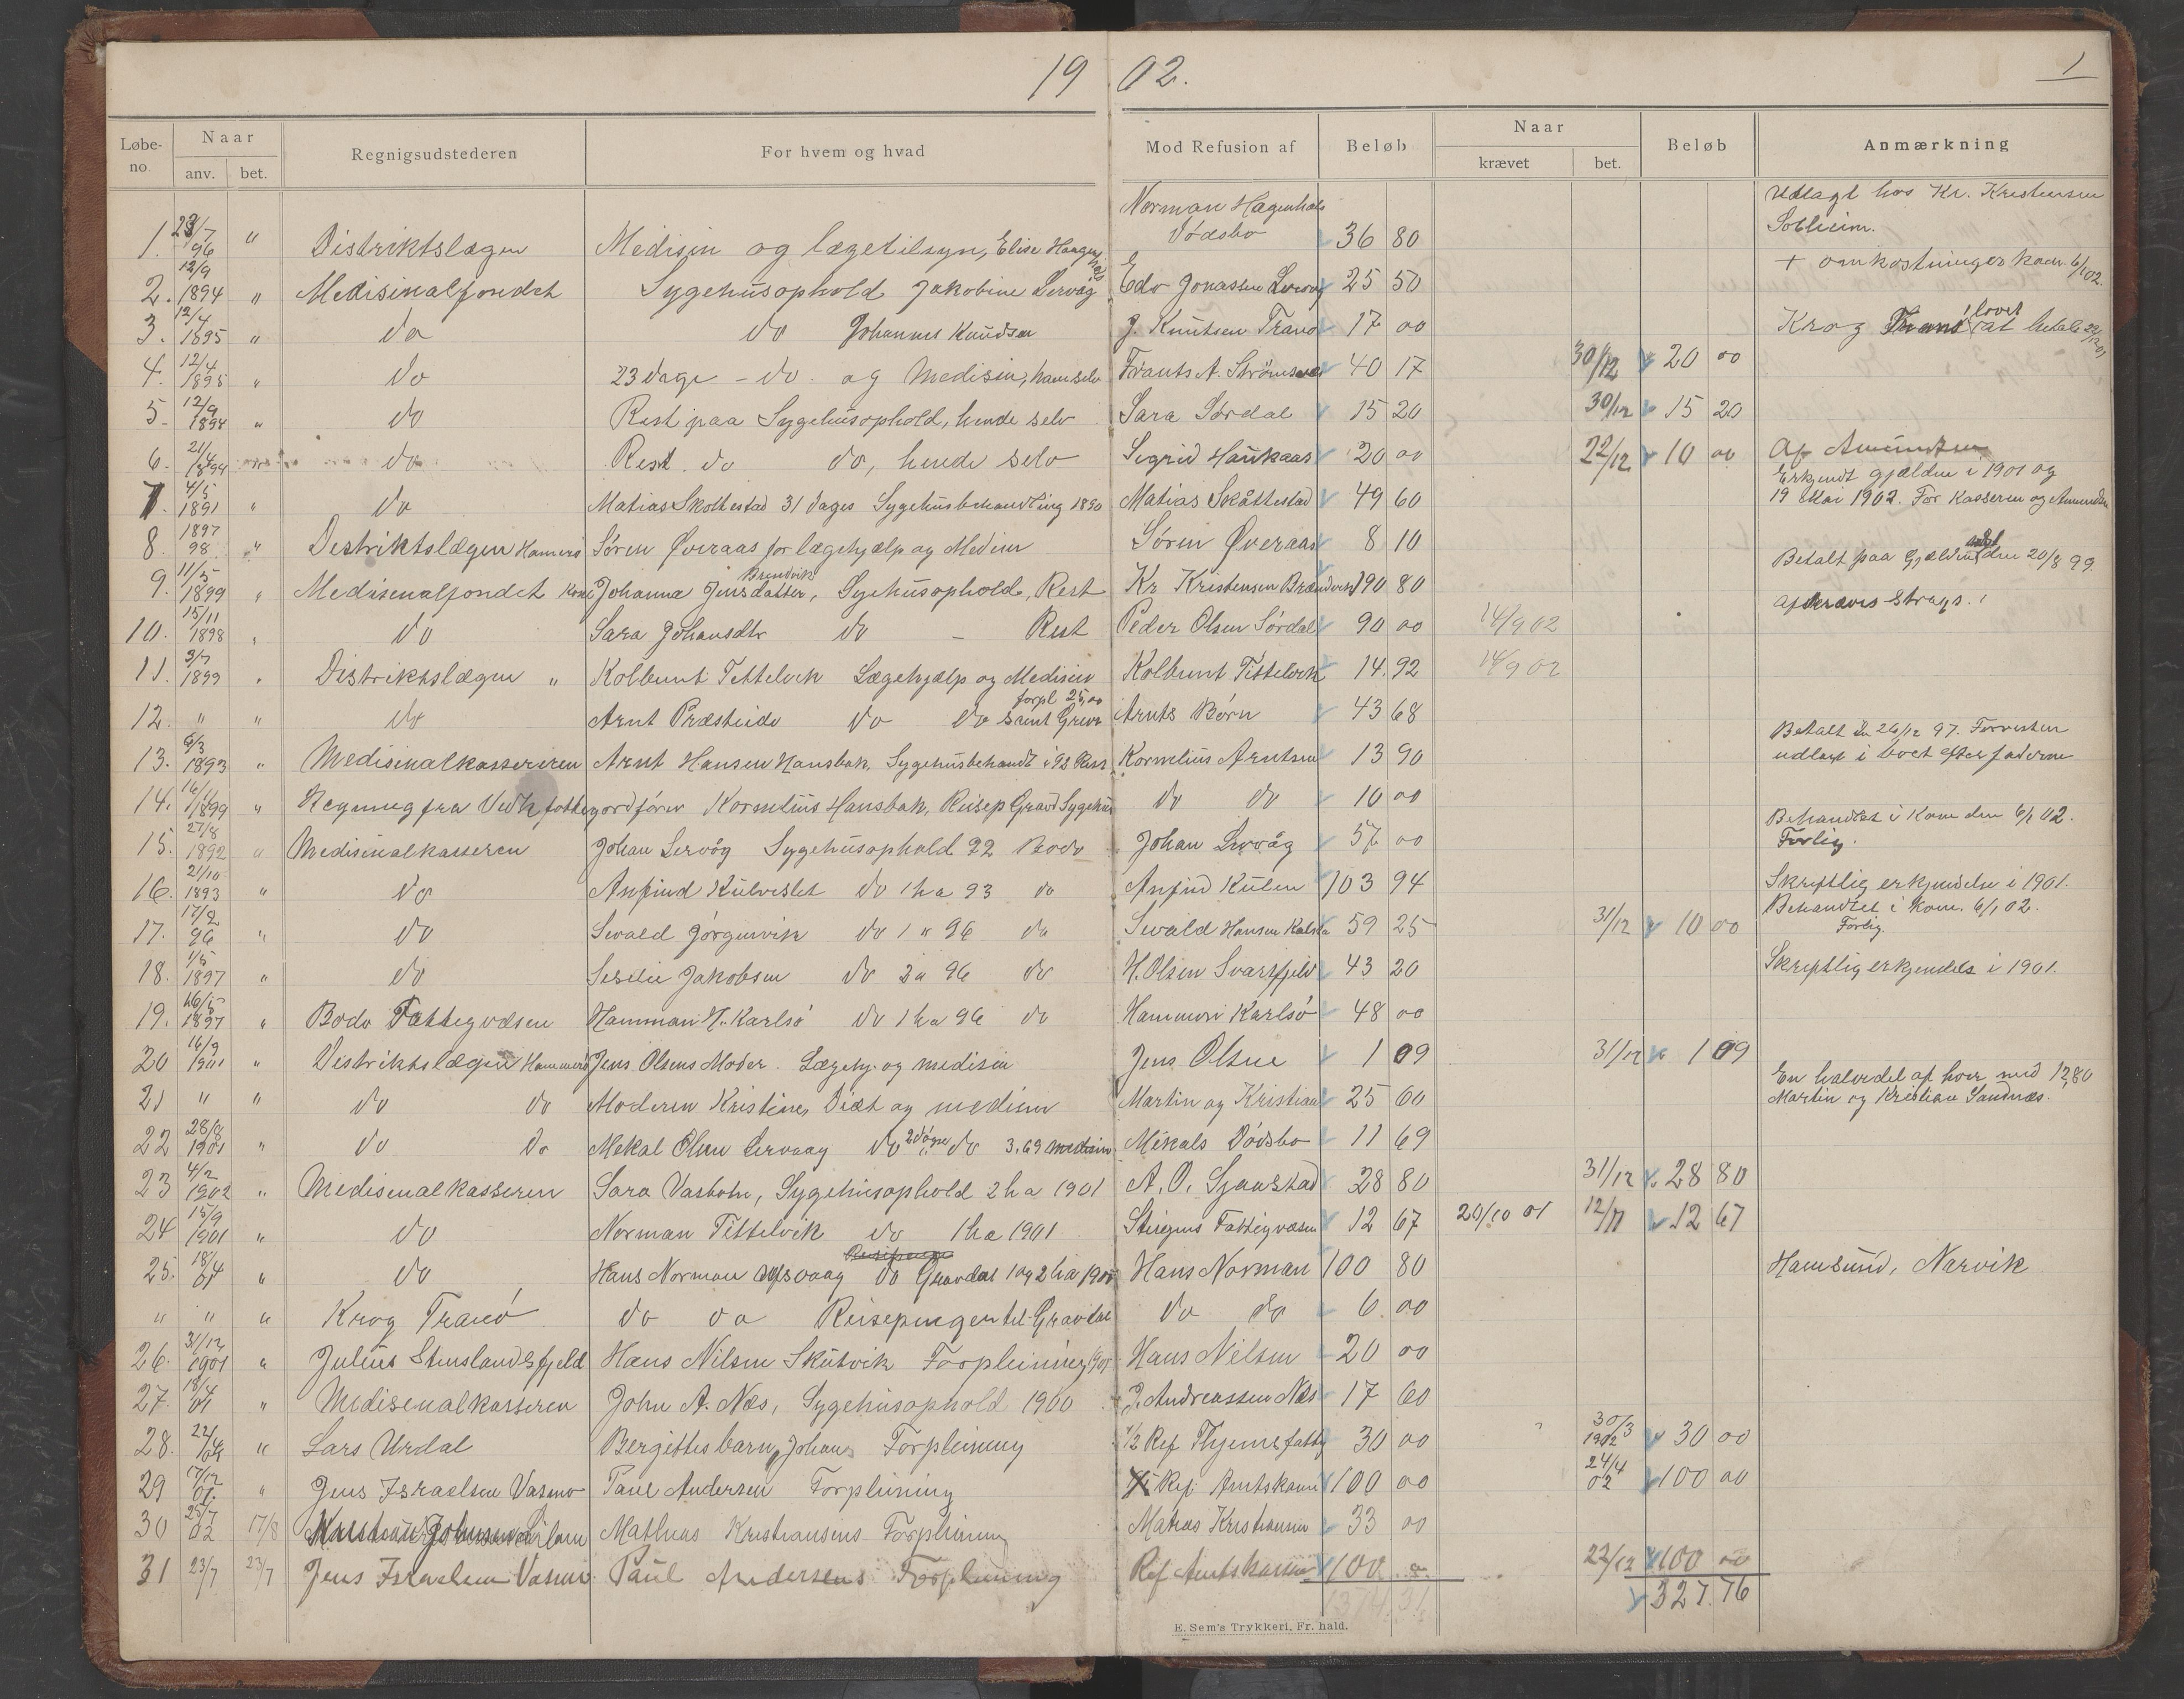 1902.
1
Løbe-no. Naar anv. bet. Regnigsudstederen For hvem og hvad Mod Refusion af Beløb Naar krævet bet. Beløb Anmærkning
Norman Hagenhals Udlagt hos Kr. Kristensen
1. 23/7 96 " Distriktslægen Medisin og lægetilsyn, Elise Dødsbo 36 80
12/9 + omkostninger kom. 6/1 02.
2. 1894 " Medisinalfondet Sygehusophold Jakobine Lervåg Edv Jonassen 25 50
3. 12/4 1895 " do do Johannes Knudsen J. Knutsen Tranö 17 00 Krog lovet at betale
4. 12/4 1895 " do 23 dage - do. og Medisin, ham selv Frants A. 40 17 30/12 20 00
5. 12/9 1894 " do Rest paa Sygehusophold, hende selv Sara Sørdal 15 20 30/12 15 20
6. 21/4 1894 do Rest do do, hende selv Sigrid Haukaas 20 00 22/12 10 00 Af Amundsen
Erkjendt gjælden i 1901 og
7. 4/5 1891 " do Matias Skottestad 31 dages Sygehusbehandling 1890 Matias Skåttestad 49 60 19 Mai 1902. For Kasseren og Amundsen
8. 1897 98 " Destriktslægen Hamerø Søren Øveraas for lægehjælp og Medisin Sören Øveraas 8 10
Brendvik Betalt paa Gjælden den 20/8 99.
9. 11/5 1899 " Medisenalfondet Johanna Jensdatter, Sygehusophold, Rest Kr Kristensen 190 80
Afkræves strags.
10. 15/11 1898 " do Sara Johansdtr do - Rest Peder Olsen Sørdal 90 00 14/9 02
11. 3/7 1899 " Distriktslægen " Kolbent Tettelvik Lægehjælp og Medisin Kolbent Tettelvik 14.92 14/9 02
forpl 25,00
12. " " do Arnt Præsteide do do samt Arnts Börn 43 68
Betalt 26/12 97.
13. 6/3 1893 " Medisinalkasseriren Arnt Hansen Hansbak, Sygehusbehandt i 92 Rest Kornelius Arntsen 13 90 udlagt i boet efter faderen
14. 1899 " Regning fra Kornelius Hansbak, do do 10 00
Behandlet i Kom den 6/1 02.
15. 27/8 1892 " Medisinalkasseren Johan Lervåg Sygehusophold 92 Bodø Johan Lervåg 57 00 Forlig.
16. 21/10 1893 " do Anfind do 1 ha 93 do Anfind 103 94 Skriftlig erkjendelse i 1901.
Behandlet i Kom. 6/1 02.
17. 17/2 96 " do Sivald Jörgenvik do 1 " 96 do Sivald Hansen 59 25 31/12 10 00 Forlig.
18. 1/5 1897 " do Seselie Jakobsen do 2 " 96 do H. Olsen Svartfjeld 43 20 Skriftlig erkjendels i 1901.
19. 1897 " Bodø Fattigvæsen Hamman H. Karlsö do 1 ha 96 do Karlsö 48 00
20 16/9 1901 " Distriktslægen Hammerö Jens Olsens Moder. Lægehj. og medisin Jens Olsen 1 09 31/12 1 09
En halvdel af hver med 12,80
21 " " do do Moderen Kristines Diæt og medisin Martin og Kristian 25 60 Martin og Kristian Sandnæs.
22 1901 " do do Mekal Olsen Lervaag do do 3.69 medisin Mikals Dödsbo 11 69
23 4/2 1902 " Medisenalkasseren Sara Vasbotn, Sygehusophold 2 ha 1901 A. O. Sjaustad 28 80 31/12 28 80
24 15/9 1901 " do Norman Tettelvik do 1 ha 1901 Steigens Fattigvæsen 12 67 20/10 01 12/11 12 67
25. 18/4 01 " do Hans Norman do Gravdal 1 og 2 ha Hans Norman 100 80 Hamsund, Narvik
" " " Krog Tranö do do Reisepenger til Gravdal do do 6 00
26. 31/12 1901 " Julius Stenslandsfjeld Hans Nilsen Skutvik Forpleining Hans Nilsen 20 00
27. 18/4 01 " Medisenalkasseren John A. Næs, Sygehusophold 1900 J. Andreassen Næs 17 60
28. " Lars Urdal Bergittes barn, Johans Forpleining 1/2 Ref 30 00 30/3 1902 30 00
29 17/12 01 " Jens Israelsen Vasmo Paul Andersen Forpleining Ref. Amtskassen 100 00 24/4 02 100 00
30 25/7 02 17/8 Mathias Kristiansens Forpleining Matias Kristiansen 33 00
31 23/7 23/7 Jens Israelsen Paul Andersens Forpleining Ref Amtskassen 100 22/12 100 00
327.76
E. Sem's Trykkeri, Fr. hald.